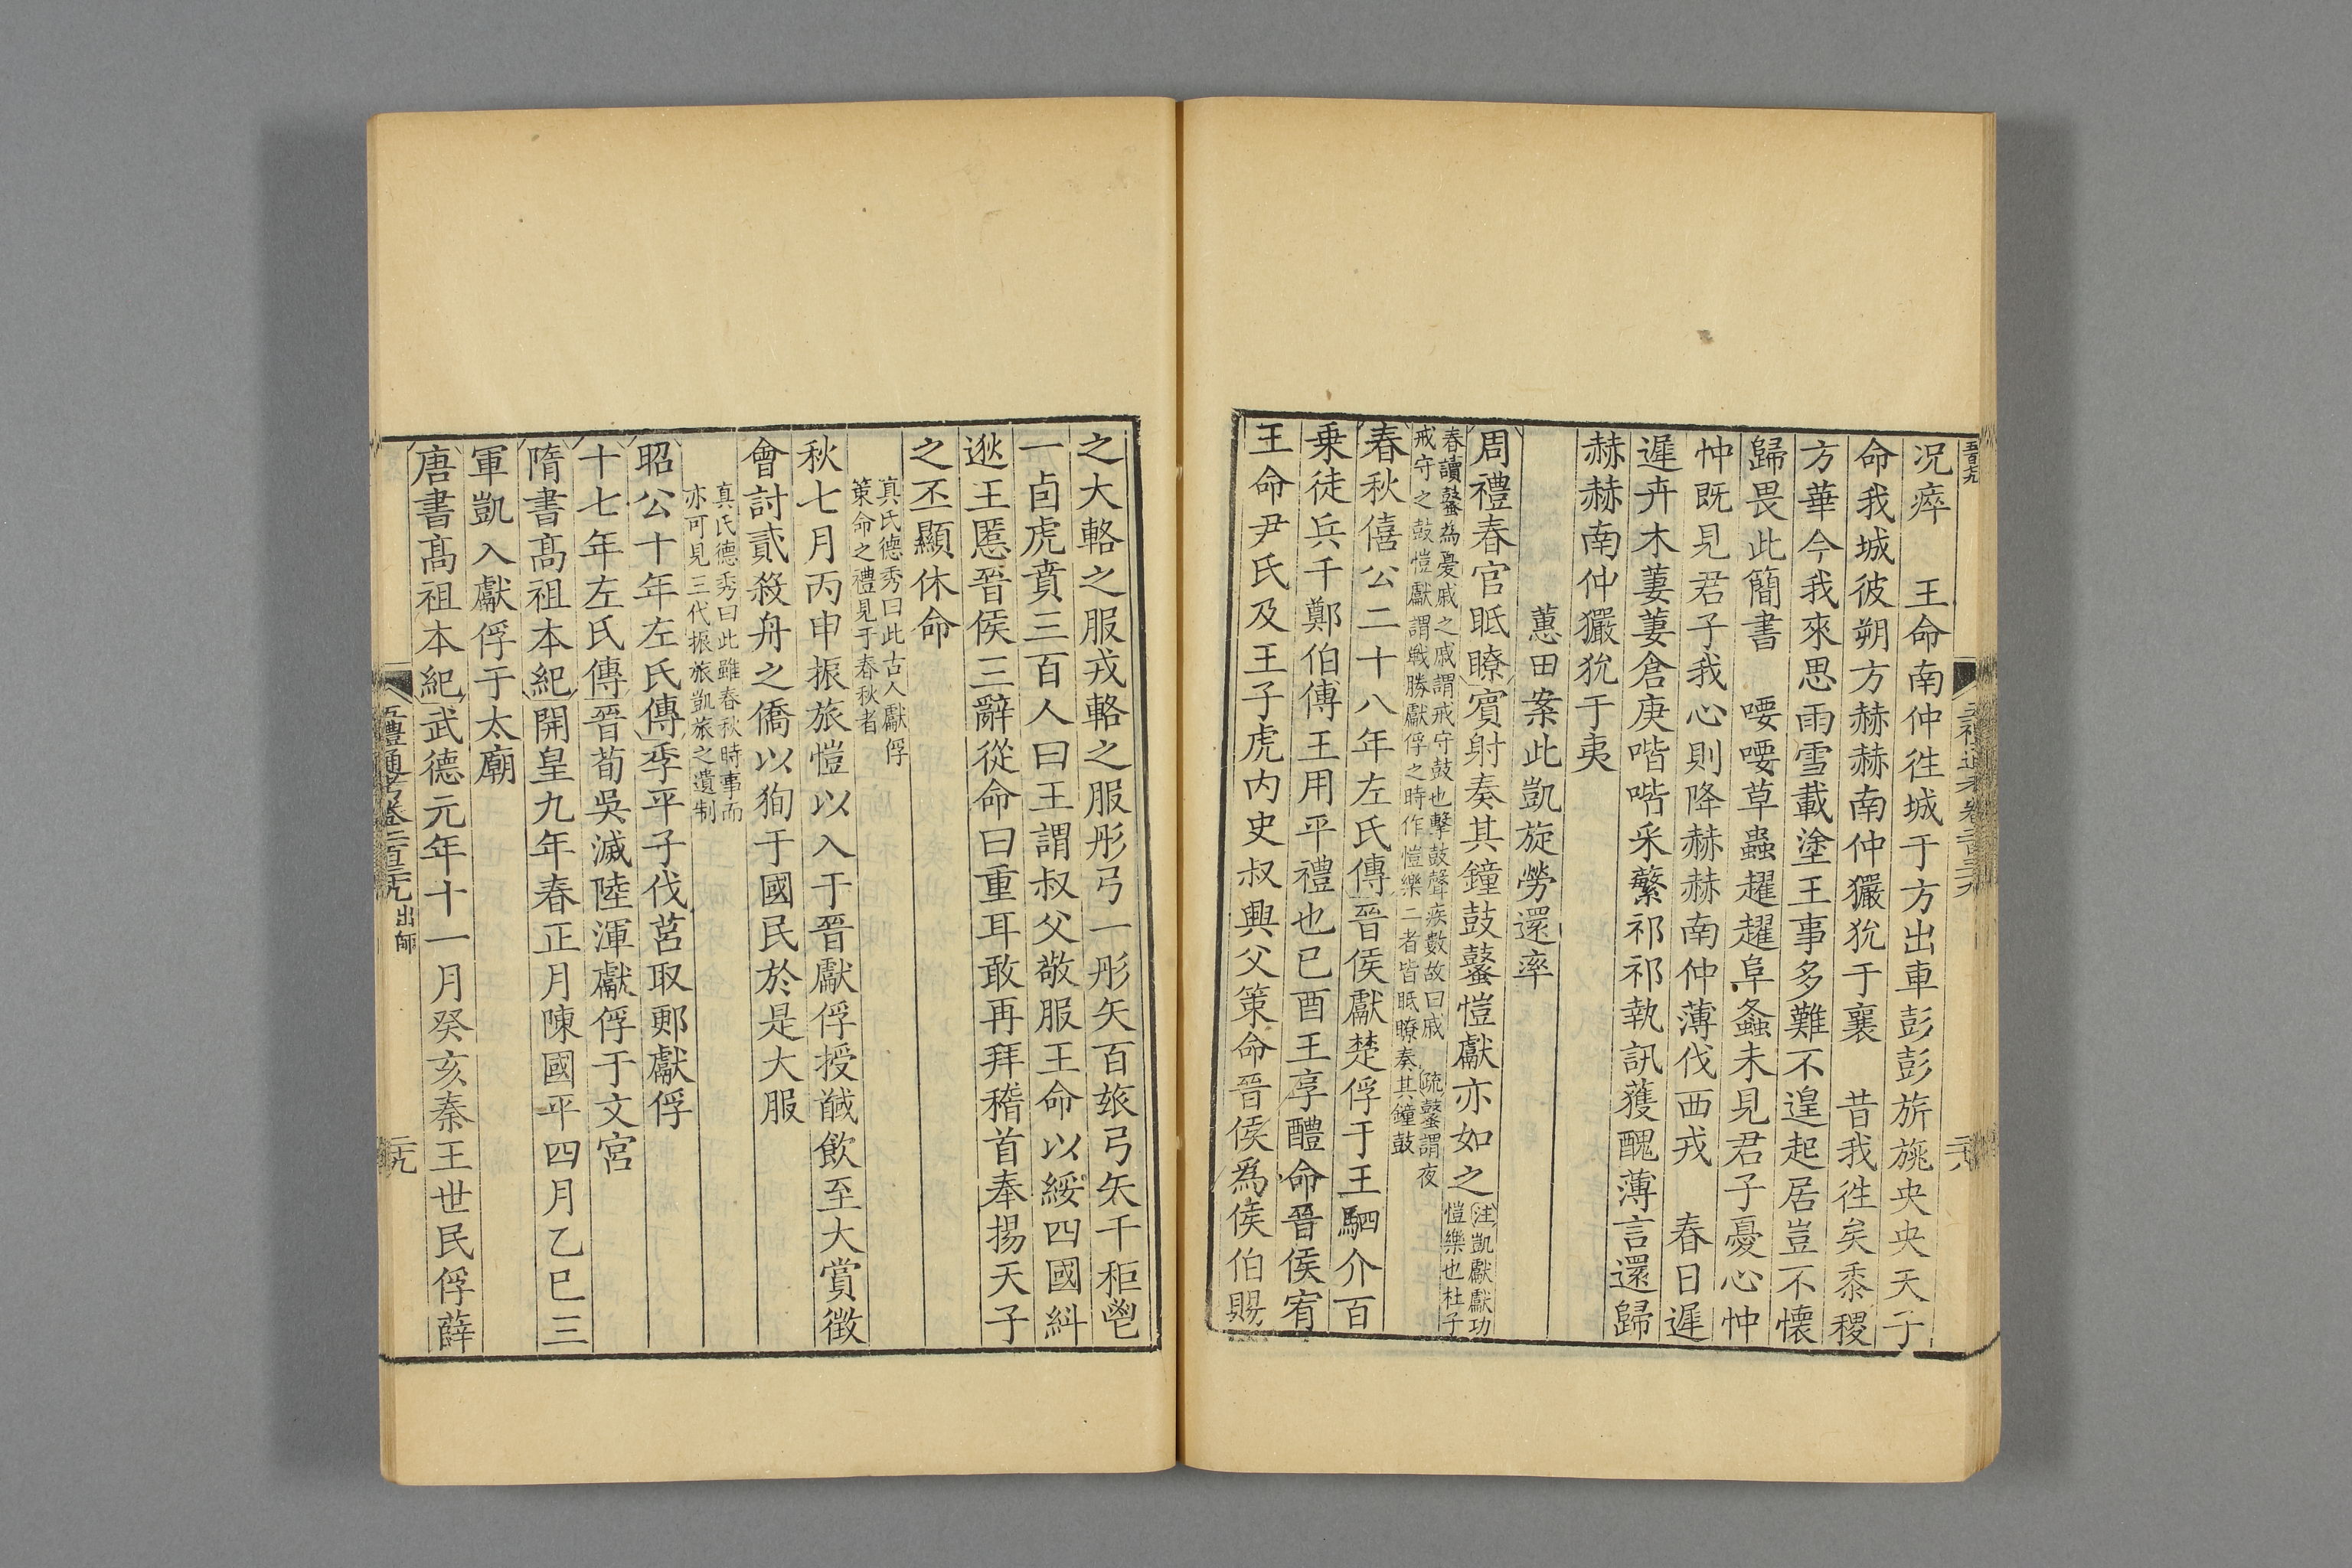 五百九
況瘁　王命南仲徃城于方出車彭彭旂旐央央天子
命我城彼朔方赫赫南仲玁狁于襄　昔我徃矣黍稷
方華今我來思雨雪載塗王事多難不遑起居豈不懷
歸畏此簡書　喓喓草蟲趯趯阜螽未見君子憂心忡
忡既見君子我心則降赫赫南仲薄伐西戎　春日遲
遲卉木萋萋倉庚喈喈采蘩祁祁執訊獲醜薄言還歸
赫赫南仲玁狁于夷
蕙田案此凱旋勞還率
周禮春官眡瞭賓射奏其鐘鼓鼜愷獻亦如之
注凱獻獻功
愷樂也杜子
春讀鼜為憂戚之戚謂戒守鼓也擊鼓聲疾數故曰戚　疏鼜謂夜
戒守之鼓愷獻謂戰勝獻俘之時作愷樂二者皆眂瞭奏其鐘鼓
春秋僖公二十八年左氏傳晉侯獻楚俘于王駟介百
乗徒兵千鄭伯傅王用平禮也已酉王享醴命晉侯宥
王命尹氏及王子虎内史叔興父策命晉侯爲侯伯賜
二十八
之大輅之服戎輅之服彤弓一彤矢百玈弓矢千秬鬯
一卣虎賁三百人曰王謂叔父敬服王命以綏四國糾
逖王慝晉侯三辭從命曰重耳敢再拜稽首奉揚天子
之丕顯休命
真氏德秀曰此古人獻俘
策命之禮見于春秋者
秋七月丙申振旅愷以入于晉獻俘授馘飲至大賞徵
會討貳殺舟之僑以狥于國民於是大服
真氏德秀曰此雖春秋時事而
亦可見三代振旅凱旅之遺制
昭公十年左氏傳季平子伐莒取郠獻俘
十七年左氏傳晉荀吳滅陸渾獻俘于文宮
隋書髙祖本紀開皇九年春正月陳國平四月乙巳三
軍凱入獻俘于太廟
唐書髙祖本紀武德元年十一月癸亥秦王世民俘薛
五禮通考卷二百三十九　出師
二十九